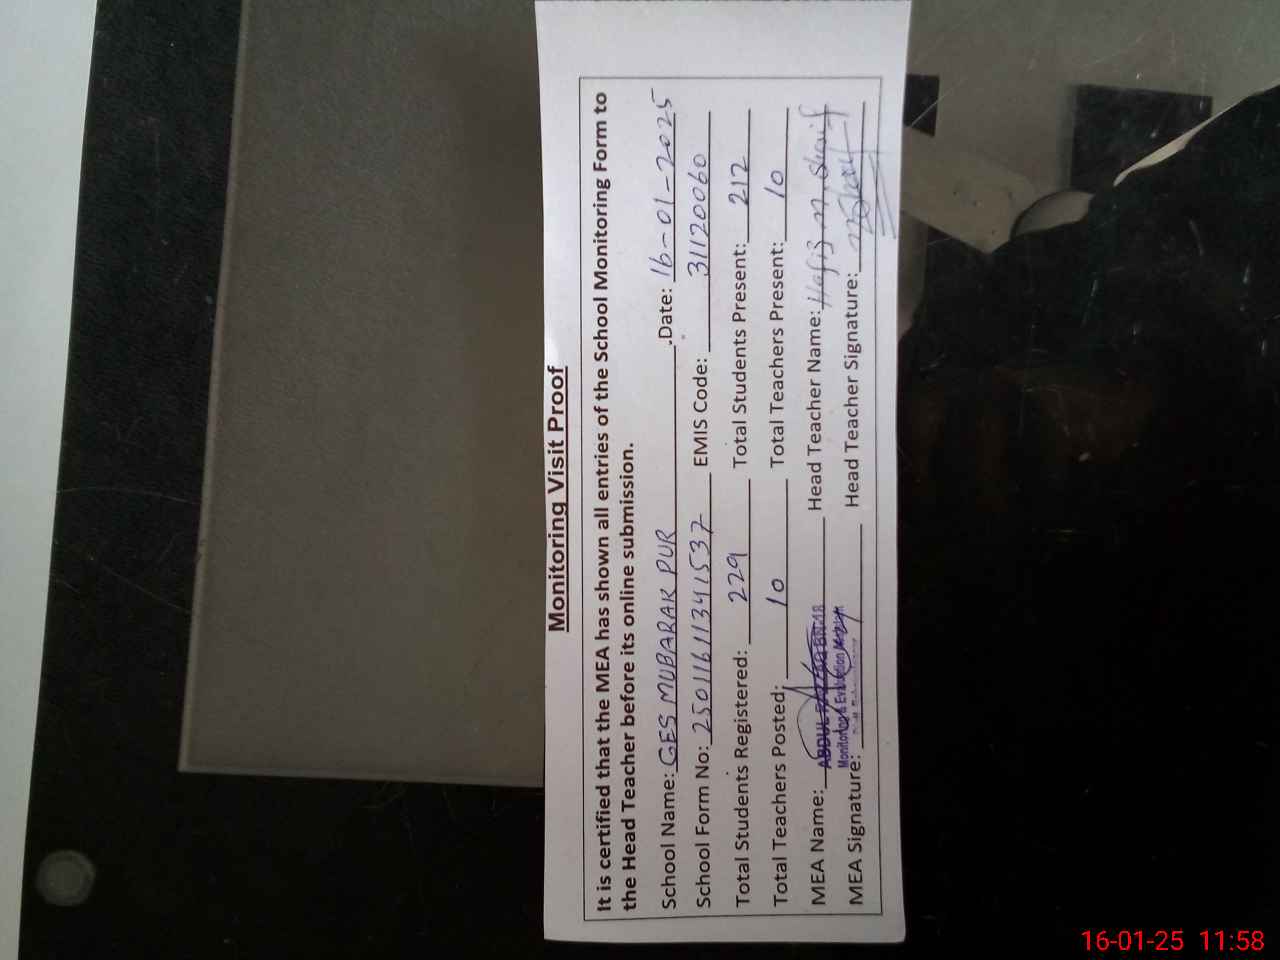 Monitoring Visit Proof
It is certified that the MEA has shown all entries of the School Monitoring Form to
the Head Teacher before its online submission.
School Name: GES MUBARAK PUR Date: 16-01-2025
School Form No: 2501161134 1537 EMIS Code: 31120060
Total Students Registered: 229 Total Students Present: 212
Total Teachers Posted: 10 Total Teachers Present: 10
MEA Name: ABDUL Head Teacher Name: Hafiz M. Sharif
Monitoring & Evaluation
MEA Signature: Head Teacher Signature:
16-01-25 11:58